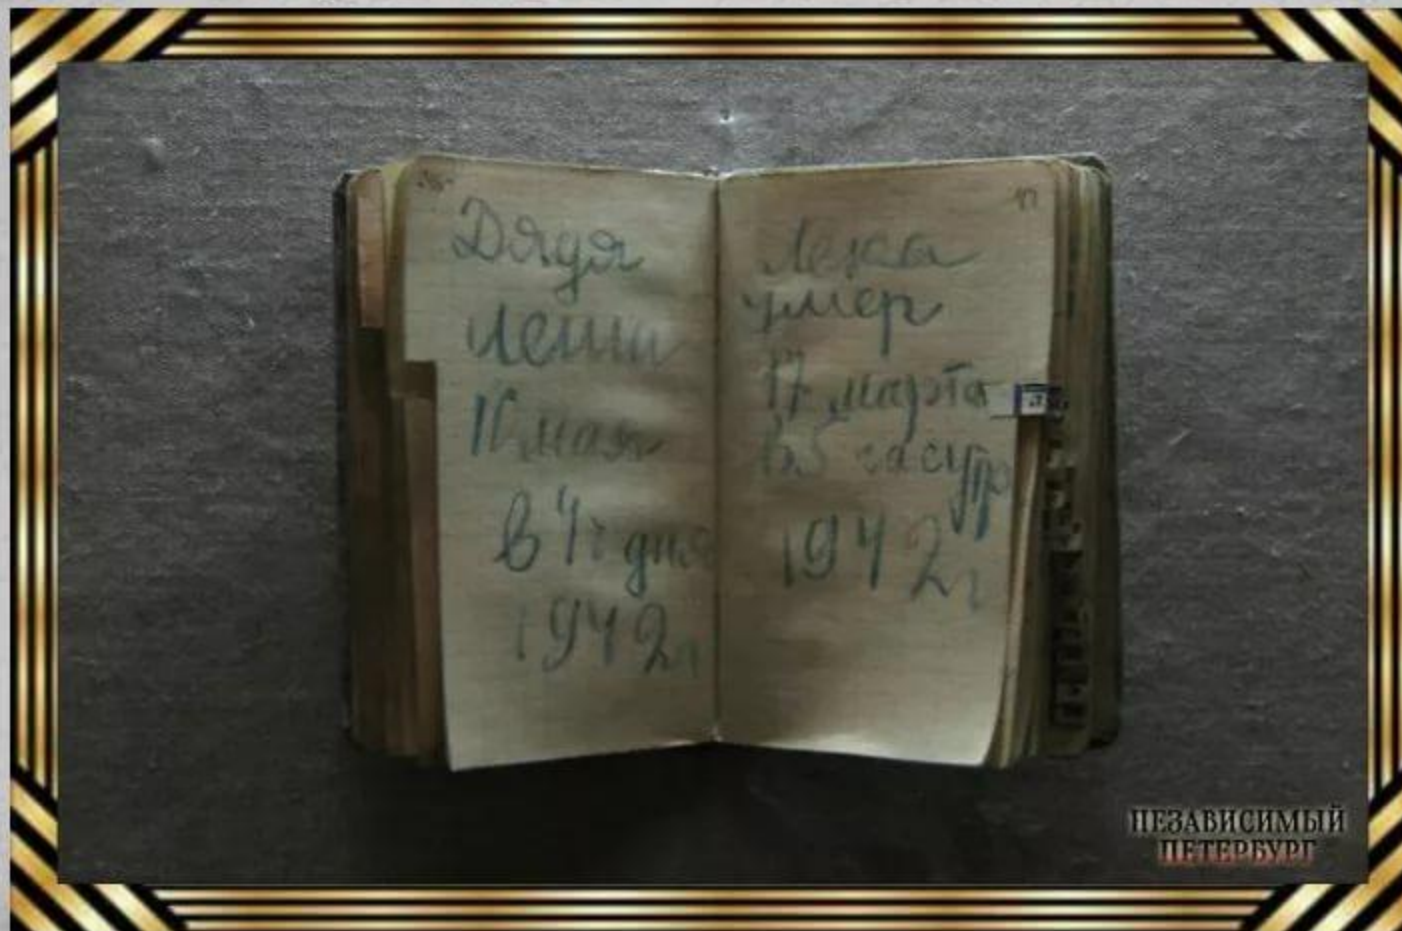 Дядя
Леша
10 мая
в 4 ч дня
1942 г
Лека
умер
17 марта
в 5 часутр
1942 г
НЕЗАВИСИМЫЙ
ПЕТЕРБУРГ